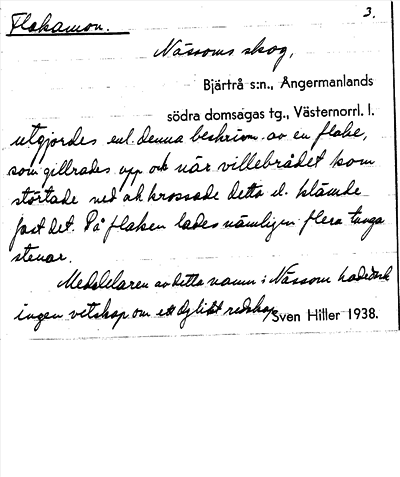 Flakamon.
3.
Nässoms skog,
Bjärtrå s:n., Ångermanlands
södra domsagas tg., Västernorrl. l.
utgjordes enl. denna beskrivn. av en flake,
som gillrades upp och när villebrådet kom
störtade ned och krossade detta el. klämde
fast det. På flaken lades nämligen flera tunga
stenar.
Meddelaren av detta namn i Nässom hade dock
ingen vetskap om ett dylikt redskap
Sven Hiller 1938.